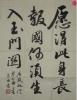 愿得此身長
報國何須生
入玉門關